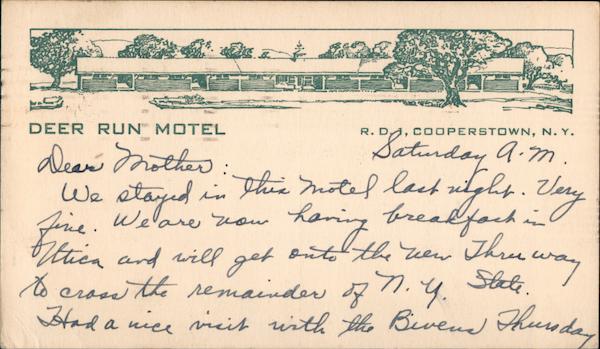 DEER RUN MOTEL
R. D. 1, COOPERSTOWN, N. Y.
Saturday A.M.
Dear Mother:
We stayed in this motel last night. Very
fine. We are now having breakfast in
Utica and will get onto the new Thruway
to cross the remainder of N. Y. State.
Had a nice visit with the Bivens Thursday